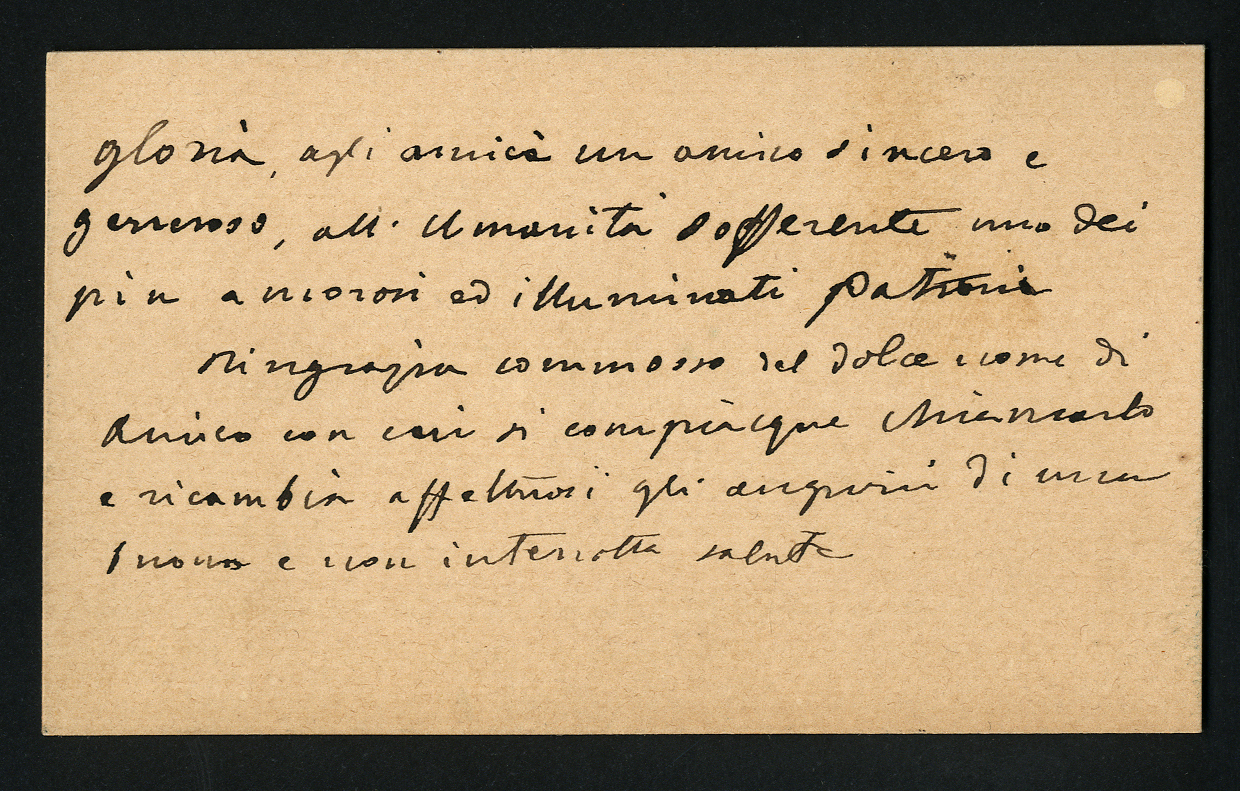 gloria, agli amici un amico sincero e
generoso, all'Umanità sofferente uno dei
più amorosi ed illuminati Patroni
Ringrazia commosso del dolce nome di
Amico con cui si compiacque chiamarlo
e ricambia affettuosi gli auguri di una
buona e non interrotta salute